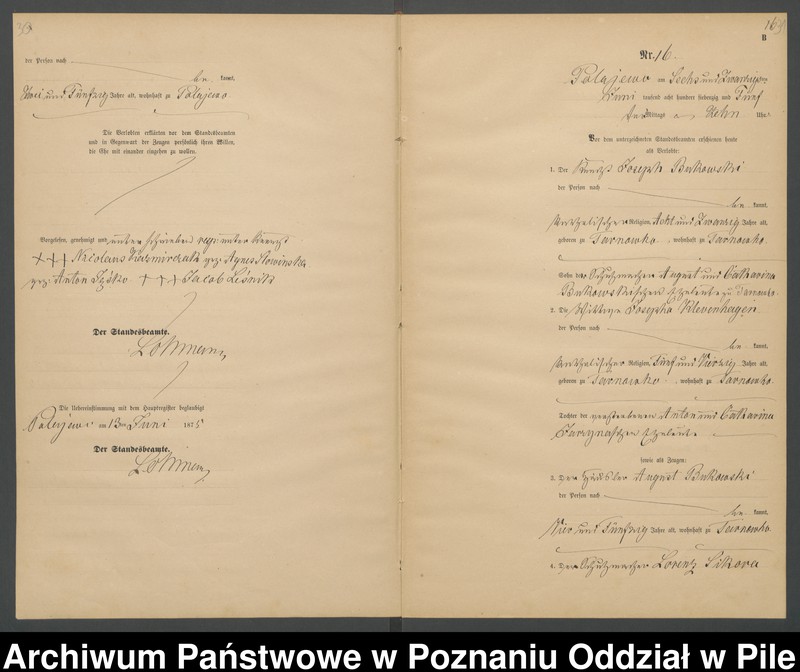 der Person nach
be kannt,
Zwei und Fünfzig Jahre alt, wohnhaft zu Polajewo
Die Verlobten erklärten vor dem Standesbeamten
und in Gegenwart der Zeugen persönlich ihren Willen,
die Ehe mit einander eingehen zu wollen.
Vorgelesen, genehmigt und unterschrieben resp. unter Kreuzt
+++ Nicolaus Kazmirczak gez. Agnes Slowinska
gez. Anton +++ Jacob
Der Standesbeamte.
Die Uebereinstimmung mit dem Hauptregister beglaubigt
Polajewo am 13ten Juni 1875
Der Standesbeamte.
163
B
Nr. 16.
Polajewo am Sechs und Zwanzigsten
Juni tausend acht hundert siebenzig und Fünf
Vor mittags Zehn Uhr.
Vor dem unterzeichneten Standesbeamten erschienen heute
als Verlobte:
1. Der Knecht Joseph Bukowski
der Person nach
be kannt,
katholischer Religion, Acht und Zwanzig Jahre alt,
geboren zu Tarnowko, wohnhaft zu Tarnowko.
Sohn der Schuhmacher August und Catharina
Bukowskischen Eheleute zu Tarnowko.
2. Die Wittwe Josepha Klevenhagen
der Person nach
be kannt,
katholischer Religion, Fünf und Vierzig Jahre alt,
geboren zu Tarnowko, wohnhaft zu Tarnowko.
Tochter der verstorbenen Anton und Catharina
Eheleute
sowie als Zeugen:
3. Der Häusler August Bukowski
der Person nach
be kannt,
Vier und Fünfzig Jahre alt, wohnhaft zu Tarnowko.
4. Der Schuhmacher Lorenz Sikora
Archiwum Państwowe w Poznaniu Oddział w Pile